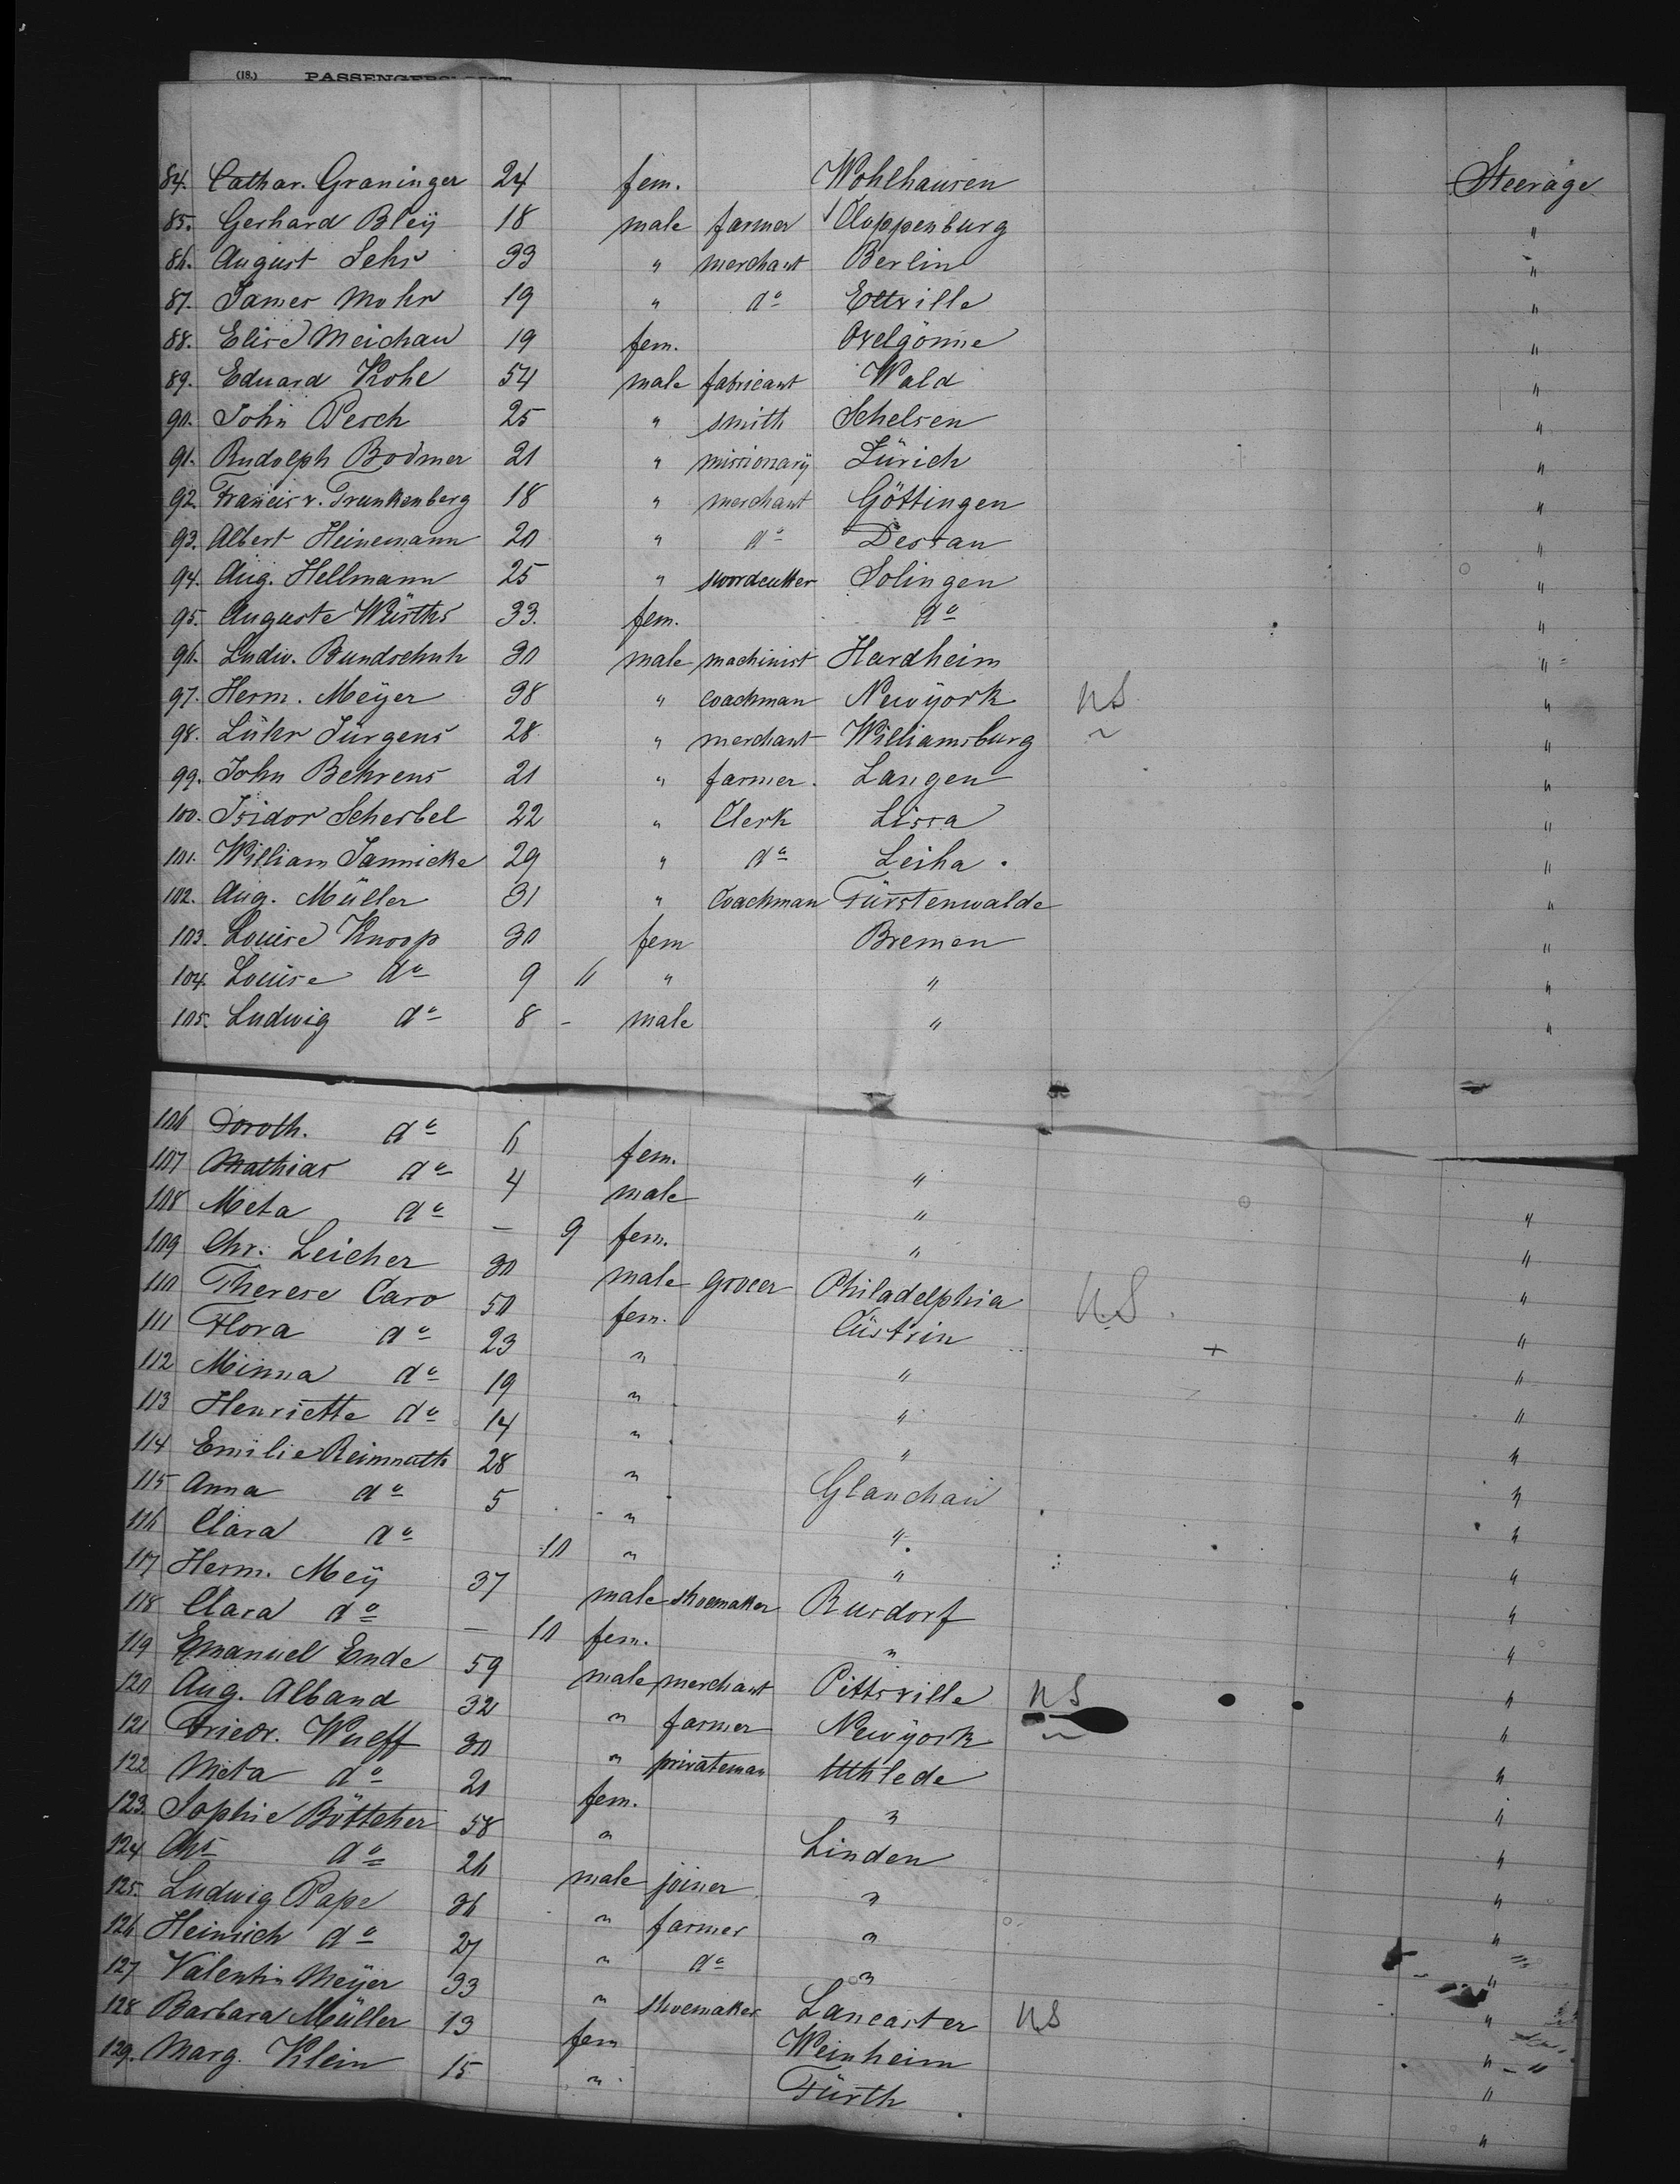 (18.) PASSENGERS LIST
84. Cathar. Graninger 24 fem. Wohlhausen Steerage
85. Gerhard Bleÿ 18 male farmer Cloppenburg "
86. August Sehr 33 " merchant Berlin "
87. James Mohr 19 " do Eltville "
88. Elise Meichau 19 fem. Ovelgönne "
89. Eduard Kohl 54 male fabricant Wald "
90. John Pesch 25 " smith Schelsen "
91. Rudolph Bodmer 21 " missionarÿ Zürich "
92. Francis v. Trunkenberg 18 " merchant Göttingen "
93. Albert Heinemann 20 " do Dessau "
94. Aug. Hellmann 25 " swordcutter Solingen "
95. Auguste Wüsths 33. fem. do "
96. Ludw. Bundschuh 30 male machinist Hardheim "
97. Herm. Meÿer 38 " coachman Newÿork US "
98. Lühr Jürgens 28. " merchant Williamsburg ~ "
99. John Behrens 21 " farmer. Langen "
100. Isidor Scherbel 22 " Clerk Lissa "
101. William Jannicke 29 " do Leiha. "
102. Aug. Müller 31 " Coachman Fürstenwalde "
103. Louise Knoop 30 fem Bremen "
104. Louise do 9 " " " "
105. Ludwig do 8 - male " "
106 Doroth. do 6 fem. " "
107 Mathias do 4 male " "
108 Meta do — 9 fem. " "
109 Chr. Leicher 30 male Grocer Philadelphia US. "
110 Therese Caro 50 fem. Cüstrin "
111 Flora do 23 " " "
112 Minna do 19 " " "
113 Henriette do 14 " " "
114 Emilie Reimnuth 28 " Glauchau "
115 Anna do 5 " " "
116 Clara do 10 " " "
117 Herm. Meÿ 37 male shoemaker Rusdorf "
118 Clara do — 10 fem. " "
119 Emanuel Ende 59 male merchant Pittsville US "
120 Aug. Alband 32 " farmer Newÿork ~ "
121 Friedr. Wulff 30 " privateman Uthlede "
122 Meta do 21 fem. " "
123. Sophie Böttcher 58 " Linden "
124 Chs do 26 male joiner " "
125. Ludwig Pape 36 " farmer " "
126 Heinrich do 27 " do " "
127 Valentin Meÿer 33 " shoemaker Lancaster US "
128 Barbara Müller 13 fem Weinheim "
129. Marg. Klein 15 " Fürth "